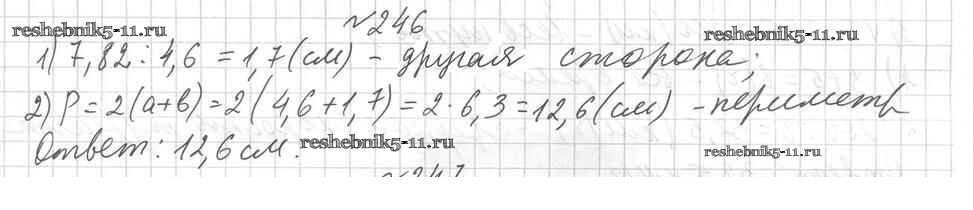 №246
reshebnik5-11.ru
reshebnik5-11.ru
1) 7,82 : 4,6 = 1,7 (см) - другая сторона;
2) P = 2(a+b) = 2(4,6+1,7) = 2·6,3 = 12,6 (см) - периметр
Ответ: 12,6 см.
reshebnik5-11.ru
reshebnik5-11.ru